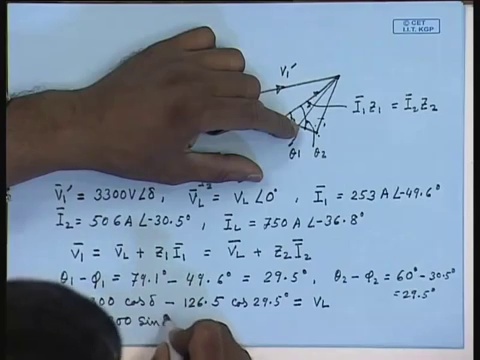 © CET
I.I.T. KGP
V₁′
Ī₁Z₁ = Ī₂Z₂
θ₁ θ₂
V̄₁′ = 3300V∠δ, V̄L = VL∠0°, Ī₁ = 253 A∠-49.6°
Ī₂ = 506 A∠-30.5°, ĪL = 750 A∠-36.8°
V̄₁ = V̄L + Z₁Ī₁ = V̄L + Z₂Ī₂
θ₁-φ₁ = 79.1° - 49.6° = 29.5°, θ₂-φ₂ = 60° - 30.5°
= 29.5°
00 cos δ - 126.5 cos 29.5° = VL
00 sin